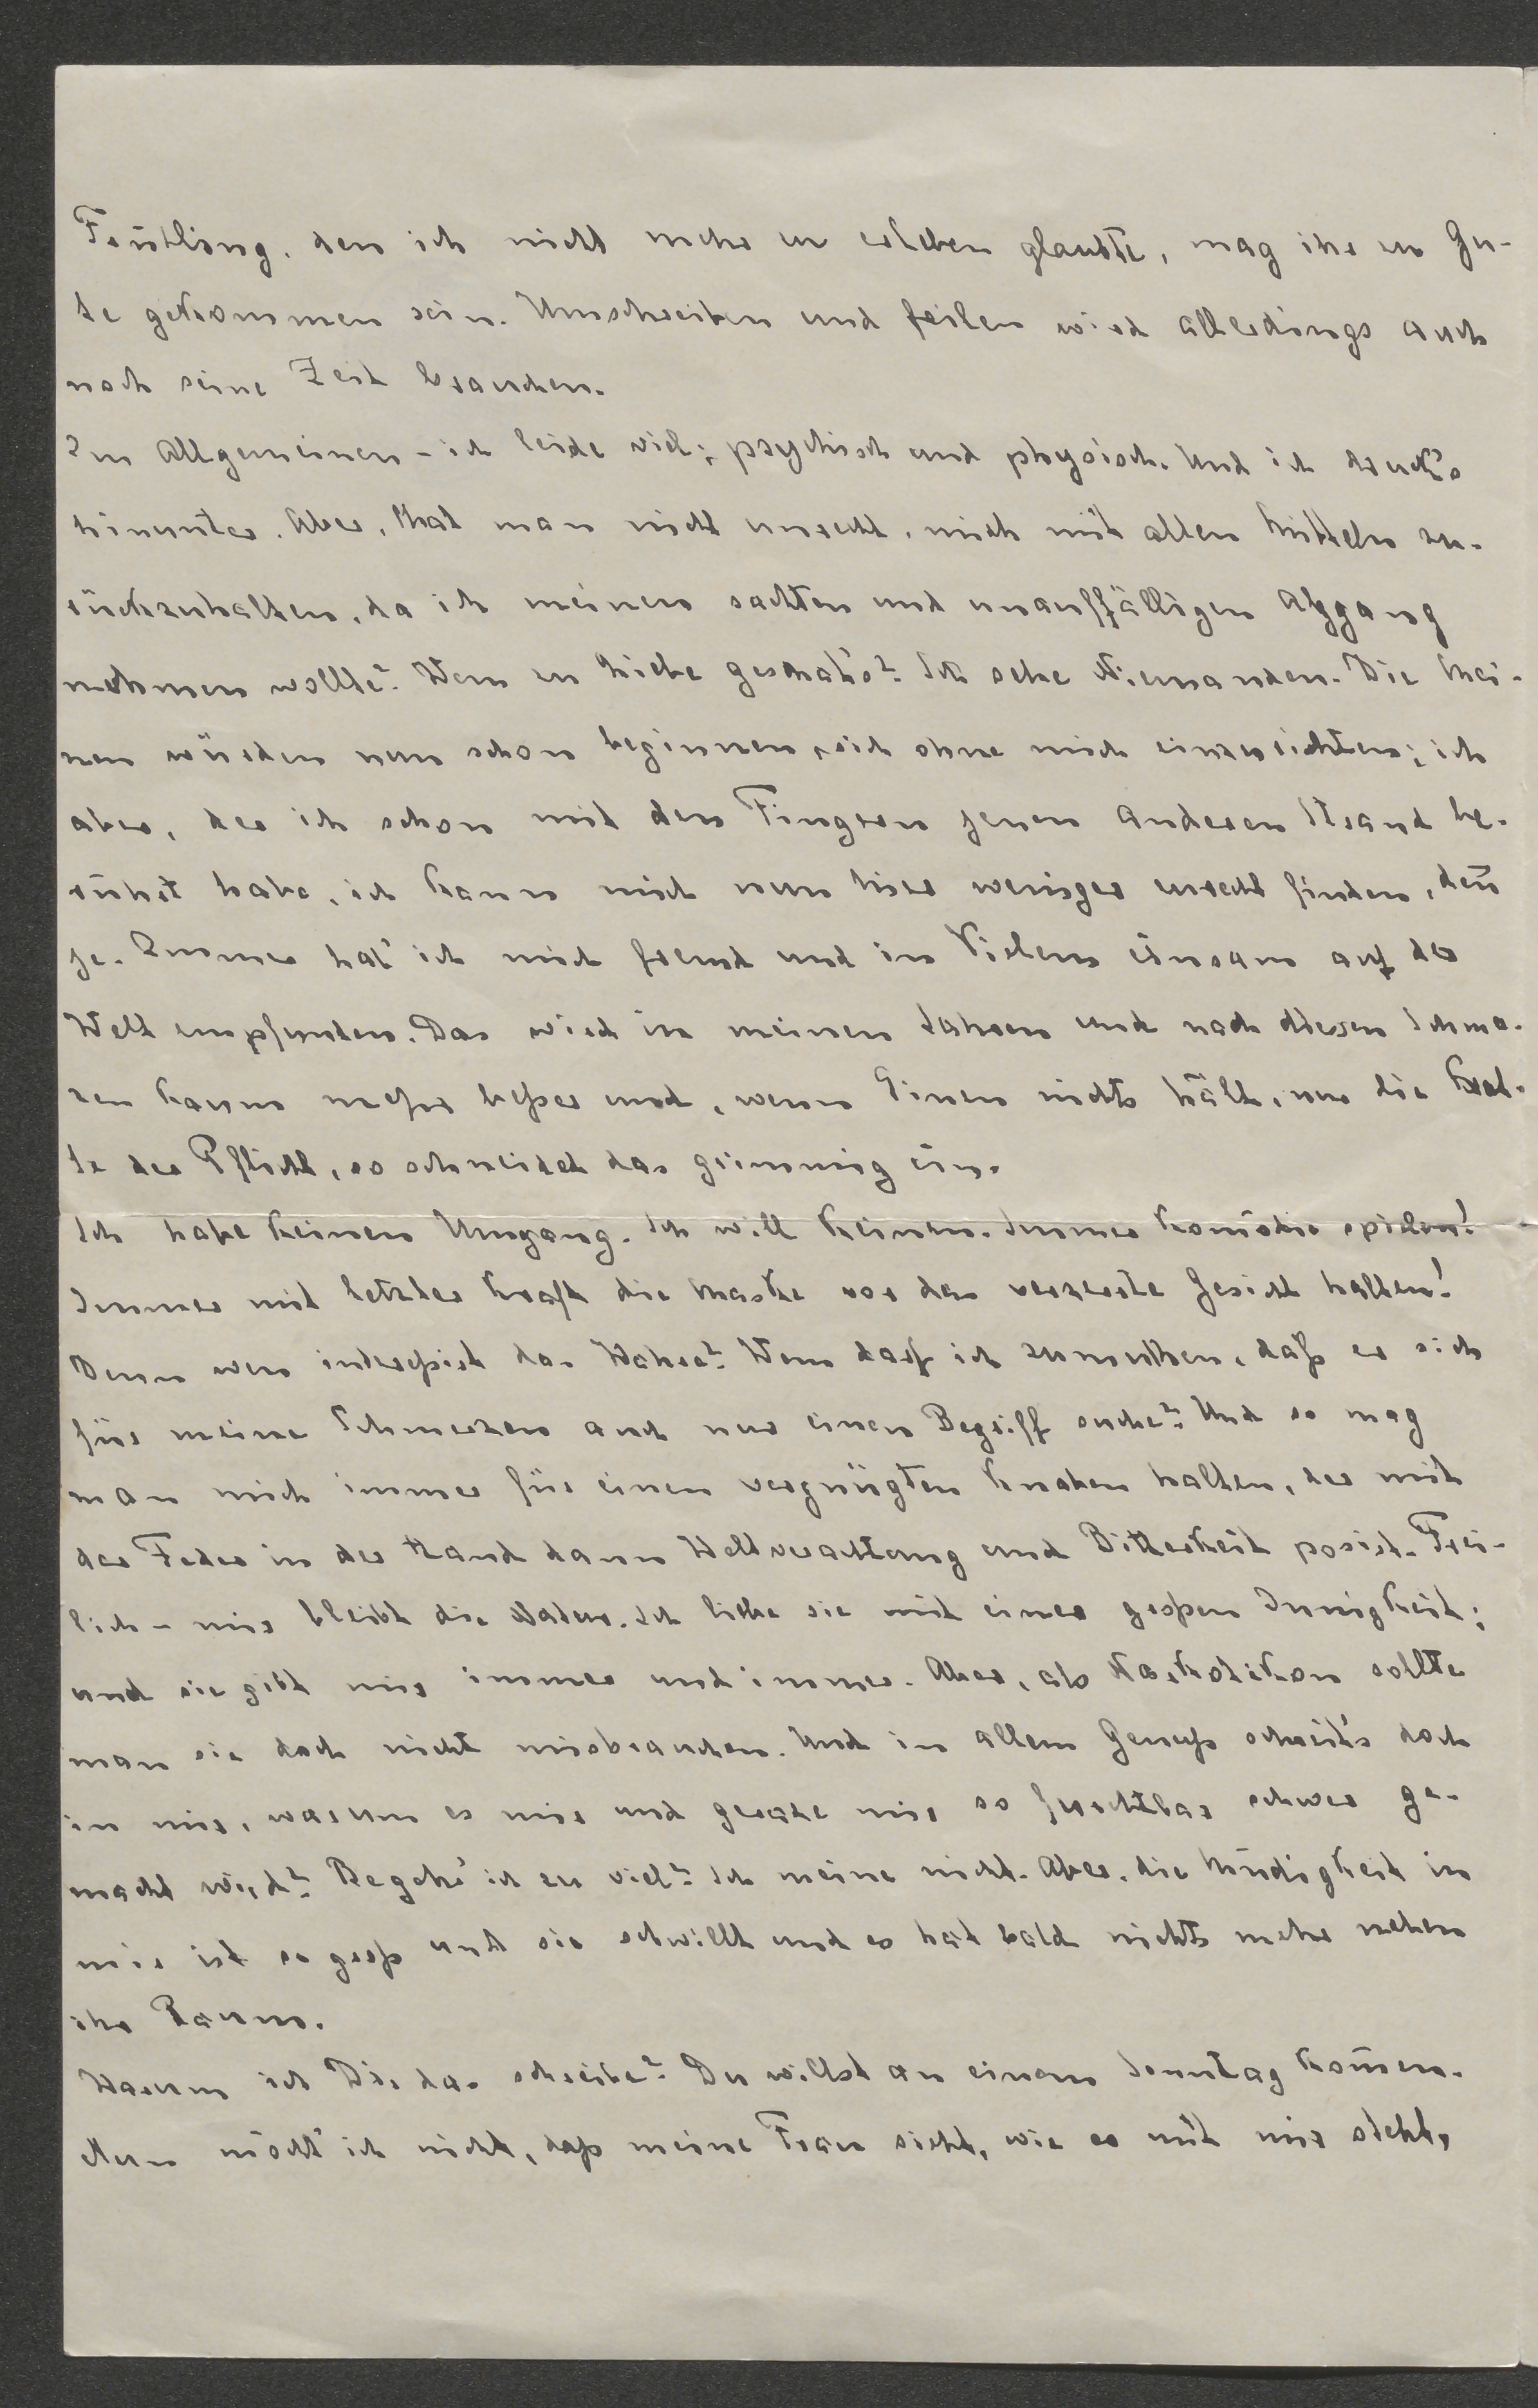 Frühling, den ich nicht mehr zu erleben glaubte, mag ihr zu Gu-
te gekommen sein. Umschreiben und feilen wird allerdings auch
noch seine Zeit brauchen.
Im Allgemeinen - ich leide viel; psychisch und physisch. Und ich druck's
hinunter. Aber, that man nicht unrecht, mich mit allen Mitteln zu-
rückzuhalten, da ich meinen sachten und unauffälligen Abgang
nehmen wollte? Wem zu Liebe geschah's? Ich sehe Niemanden. Die Mei-
nen würden nun schon beginnen, sich ohne mich einzurichten; ich
aber, der ich schon mit den Fingern jenen anderen Strand be-
rührt habe, ich kann mich nun hier weniger zurecht finden, deñ
je. Immer hab' ich mich fremd und in Vielem einsam auf der
Welt empfunden. Das wird in meinen Jahren und nach diesen Schmer-
zen kaum mehr beßer und, wenn Einen nichts hält, nur die Kral-
le der Pflicht, so schneidet das grimmig ein.
Ich habe keinen Umgang. Ich will keinen. Immer Komödie spielen!
Immer mit letzter Kraft die Maske vor das verzerrte Gesicht halten!
Denn wen intereßirt das Wahre? Wem darf ich zumuthen, daß er sich
für meine Schmerzen auch nur einen Begriff suche? Und so mag
man mich immer für einen vergnügten Knaben halten, der mit
der Feder in der Hand dann Weltverachtung und Bitterkeit posirt. Frei-
lich - mir bleibt die Natur. Ich liebe sie mit einer großen Innigkeit;
und sie gibt mir immer und immer. Aber, als Narkotikon sollte
man sie doch nicht misbrauchen. Und in allem Genuß schreit's doch
in mir, warum es mir und gerade mir so furchtbar schwer ge-
macht wird? Begehr' ich zu viel? Ich meine nicht. Aber, die Müdigkeit in
mir ist so groß und sie schwillt und es hat bald nichts mehr neben
ihr Raum.
Warum ich Dir das schreibe? Du willst an einem Sonntag kom̃en.
Nun möcht' ich nicht, daß meine Frau sieht, wie es mit mir steht,